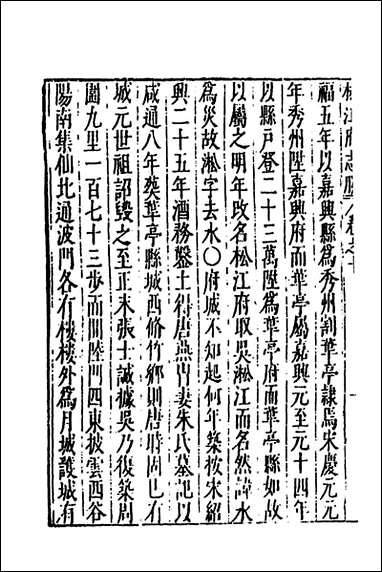 松江府志勝
福五年以嘉興縣爲秀州割華亭隸焉宋慶元元
年秀州陞嘉興府而華亭屬嘉興元至元十四年
以縣戶登二十三萬陞爲華亭府而華亭縣如故
以屬之明年改名松江府取吳淞江而名然諱水
爲災故淞字去水〇府城不知起何年築按宋紹
興二十五年酒務鑿土得唐燕冑妻朱氏墓記以
咸通八年葬華亭縣城西脩竹鄉則唐時固已有
城元世祖詔毀之至正末張士誠據吳乃復築周
圍九里一百七十三步而闢陸門四東披雲西谷
陽南集仙北通波門各有樓樓外爲月城護城有